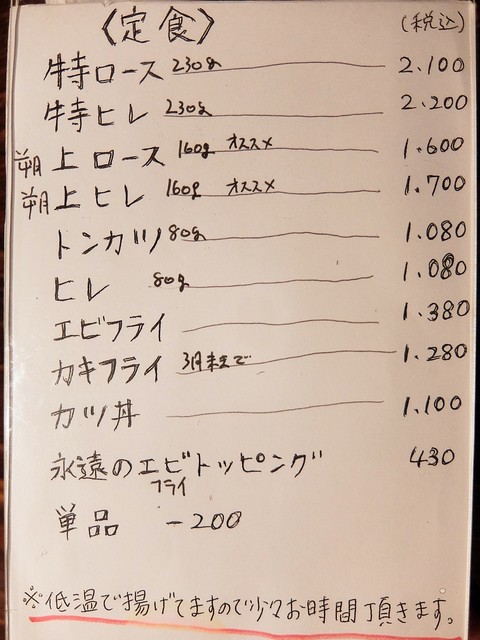 《定食》 (税込)
特ロース 230g 2.100
特ヒレ 230g 2.200
朔 上ロース 160g オススメ 1.600
朔 上ヒレ 160g オススメ 1.700
トンカツ 80g 1.080
ヒレ 80g 1.080
エビフライ 1.380
カキフライ 3月末まで 1.280
カツ丼 1.100
永遠のエビトッピング 430
フライ
単品 -200
※低温で揚げてますので少々お時間頂きます。